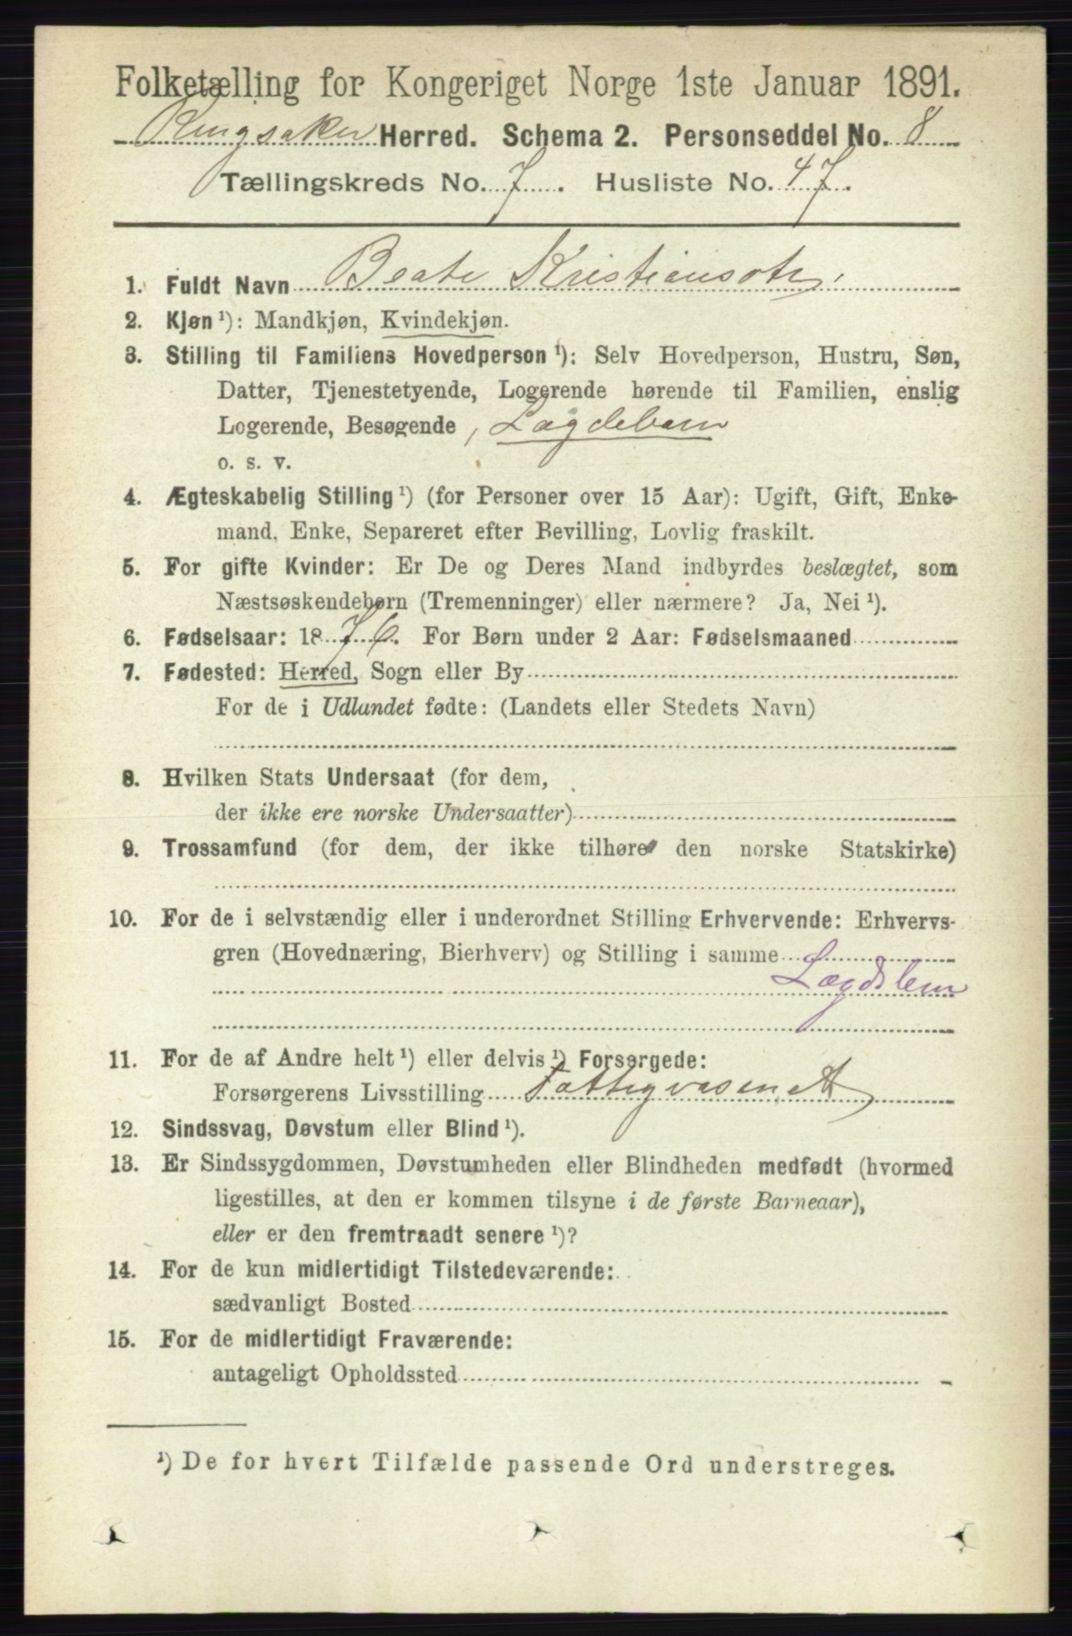 Folketælling for Kongeriget Norge 1ste Januar 1891.
Ringsaker Herred. Schema 2. Personseddel No. 8
Tællingskreds No. 7. Husliste No. 47.
1. Fuldt Navn Beate Kristiansdtr.
2. Kjøn ¹): Mandkjøn, Kvindekjøn.
3. Stilling til Familiens Hovedperson ¹): Selv Hovedperson, Hustru, Søn,
Datter, Tjenestetyende, Logerende hørende til Familien, enslig
Logerende, Besøgende, Lægdebarn
o. s. v.
4. Ægteskabelig Stilling ¹) (for Personer over 15 Aar): Ugift, Gift, Enke-
mand, Enke, Separeret efter Bevilling, Lovlig fraskilt.
5. For gifte Kvinder: Er De og Deres Mand indbyrdes beslægtet, som
Næstsøskendebørn (Tremenninger) eller nærmere? Ja, Nei ¹).
6. Fødselsaar: 1876. For Børn under 2 Aar: Fødselsmaaned
7. Fødested: Herred, Sogn eller By
For de i Udlandet fødte: (Landets eller Stedets Navn)
8. Hvilken Stats Undersaat (for dem,
der ikke ere norske Undersaatter)
9. Trossamfund (for dem, der ikke tilhøre den norske Statskirke)
10. For de i selvstændig eller i underordnet Stilling Erhvervende: Erhvervs-
gren (Hovednæring, Bierhverv) og Stilling i samme
Lægdslem
11. For de af Andre helt ¹) eller delvis ¹) Forsørgede:
Forsørgerens Livsstilling Fattigvesenet
12. Sindssvag, Døvstum eller Blind ¹).
13. Er Sindssygdommen, Døvstumheden eller Blindheden medfødt (hvormed
ligestilles, at den er kommen tilsyne i de første Barneaar),
eller er den fremtraadt senere ¹)?
14. For de kun midlertidigt Tilstedeværende:
sædvanligt Bosted
15. For de midlertidigt Fraværende:
antageligt Opholdssted
¹) De for hvert Tilfælde passende Ord understreges.